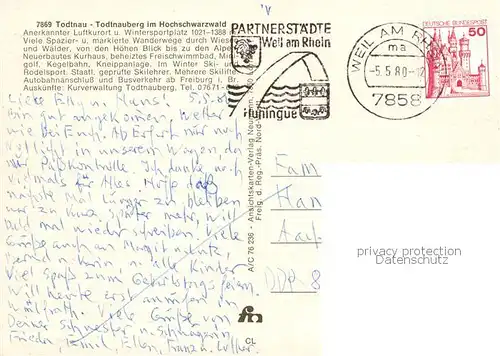 7869 Todtnau - Todtnauberg im Hochschwarzwald
Anerkannter Luftkurort u. Wintersportplatz 1021-1388 m
Viele Spazier- u. markierte Wanderwege durch Wiesen
und Wälder, von den Höhen Blick bis zu den Alpen
Neuerbautes Kurhaus, beheiztes Freischwimmbad, Mi
golf, Kegelbahn, Kneippanlage. Im Winter Ski- un
Rodelsport. Staatl. geprüfte Skilehrer. Mehrere Skilifte
Autobahnanschluß und Busverkehr ab Freiburg i. Br.
Auskünfte: Kurverwaltung Todtnauberg. Tel. 07671-
PARTNERSTÄDTE
Weil am Rhein
Huningue
WEIL AM RHEIN
ma
-5.5.80-12
7858
DEUTSCHE BUNDESPOST
50
Liebe Elly u. Hans! 5.5.80
Bin gut angekommen, Wetter
wie bei Euch. Ab Erfurt nur noch
höflich in unserem Wagen, da
nur Paßkontrolle. Ich danke noch
vielmals für Alles. Hoffe daß
nächste Mal länger zu bleiben
war zu kurz. Später mehr, will
bald mal wieder schreiben. Viele
Grüße auch an Margit u.
Bernd u. u. alle Kinder
Viel Spaß zum Geburtstagfeiern
Will heute erst anrufen in
Viele Grüße von
Deiner Schwester u. Schwägerin
Frieda, Emil, Ellen, Franz u.
A/C 76 236 - Ansichtskarten-Verlag
Freig. d. Reg.-Präs. Nord-
Fam
Han
DDR-8
CL
privacy protection
AnsichtskartenHandel.de